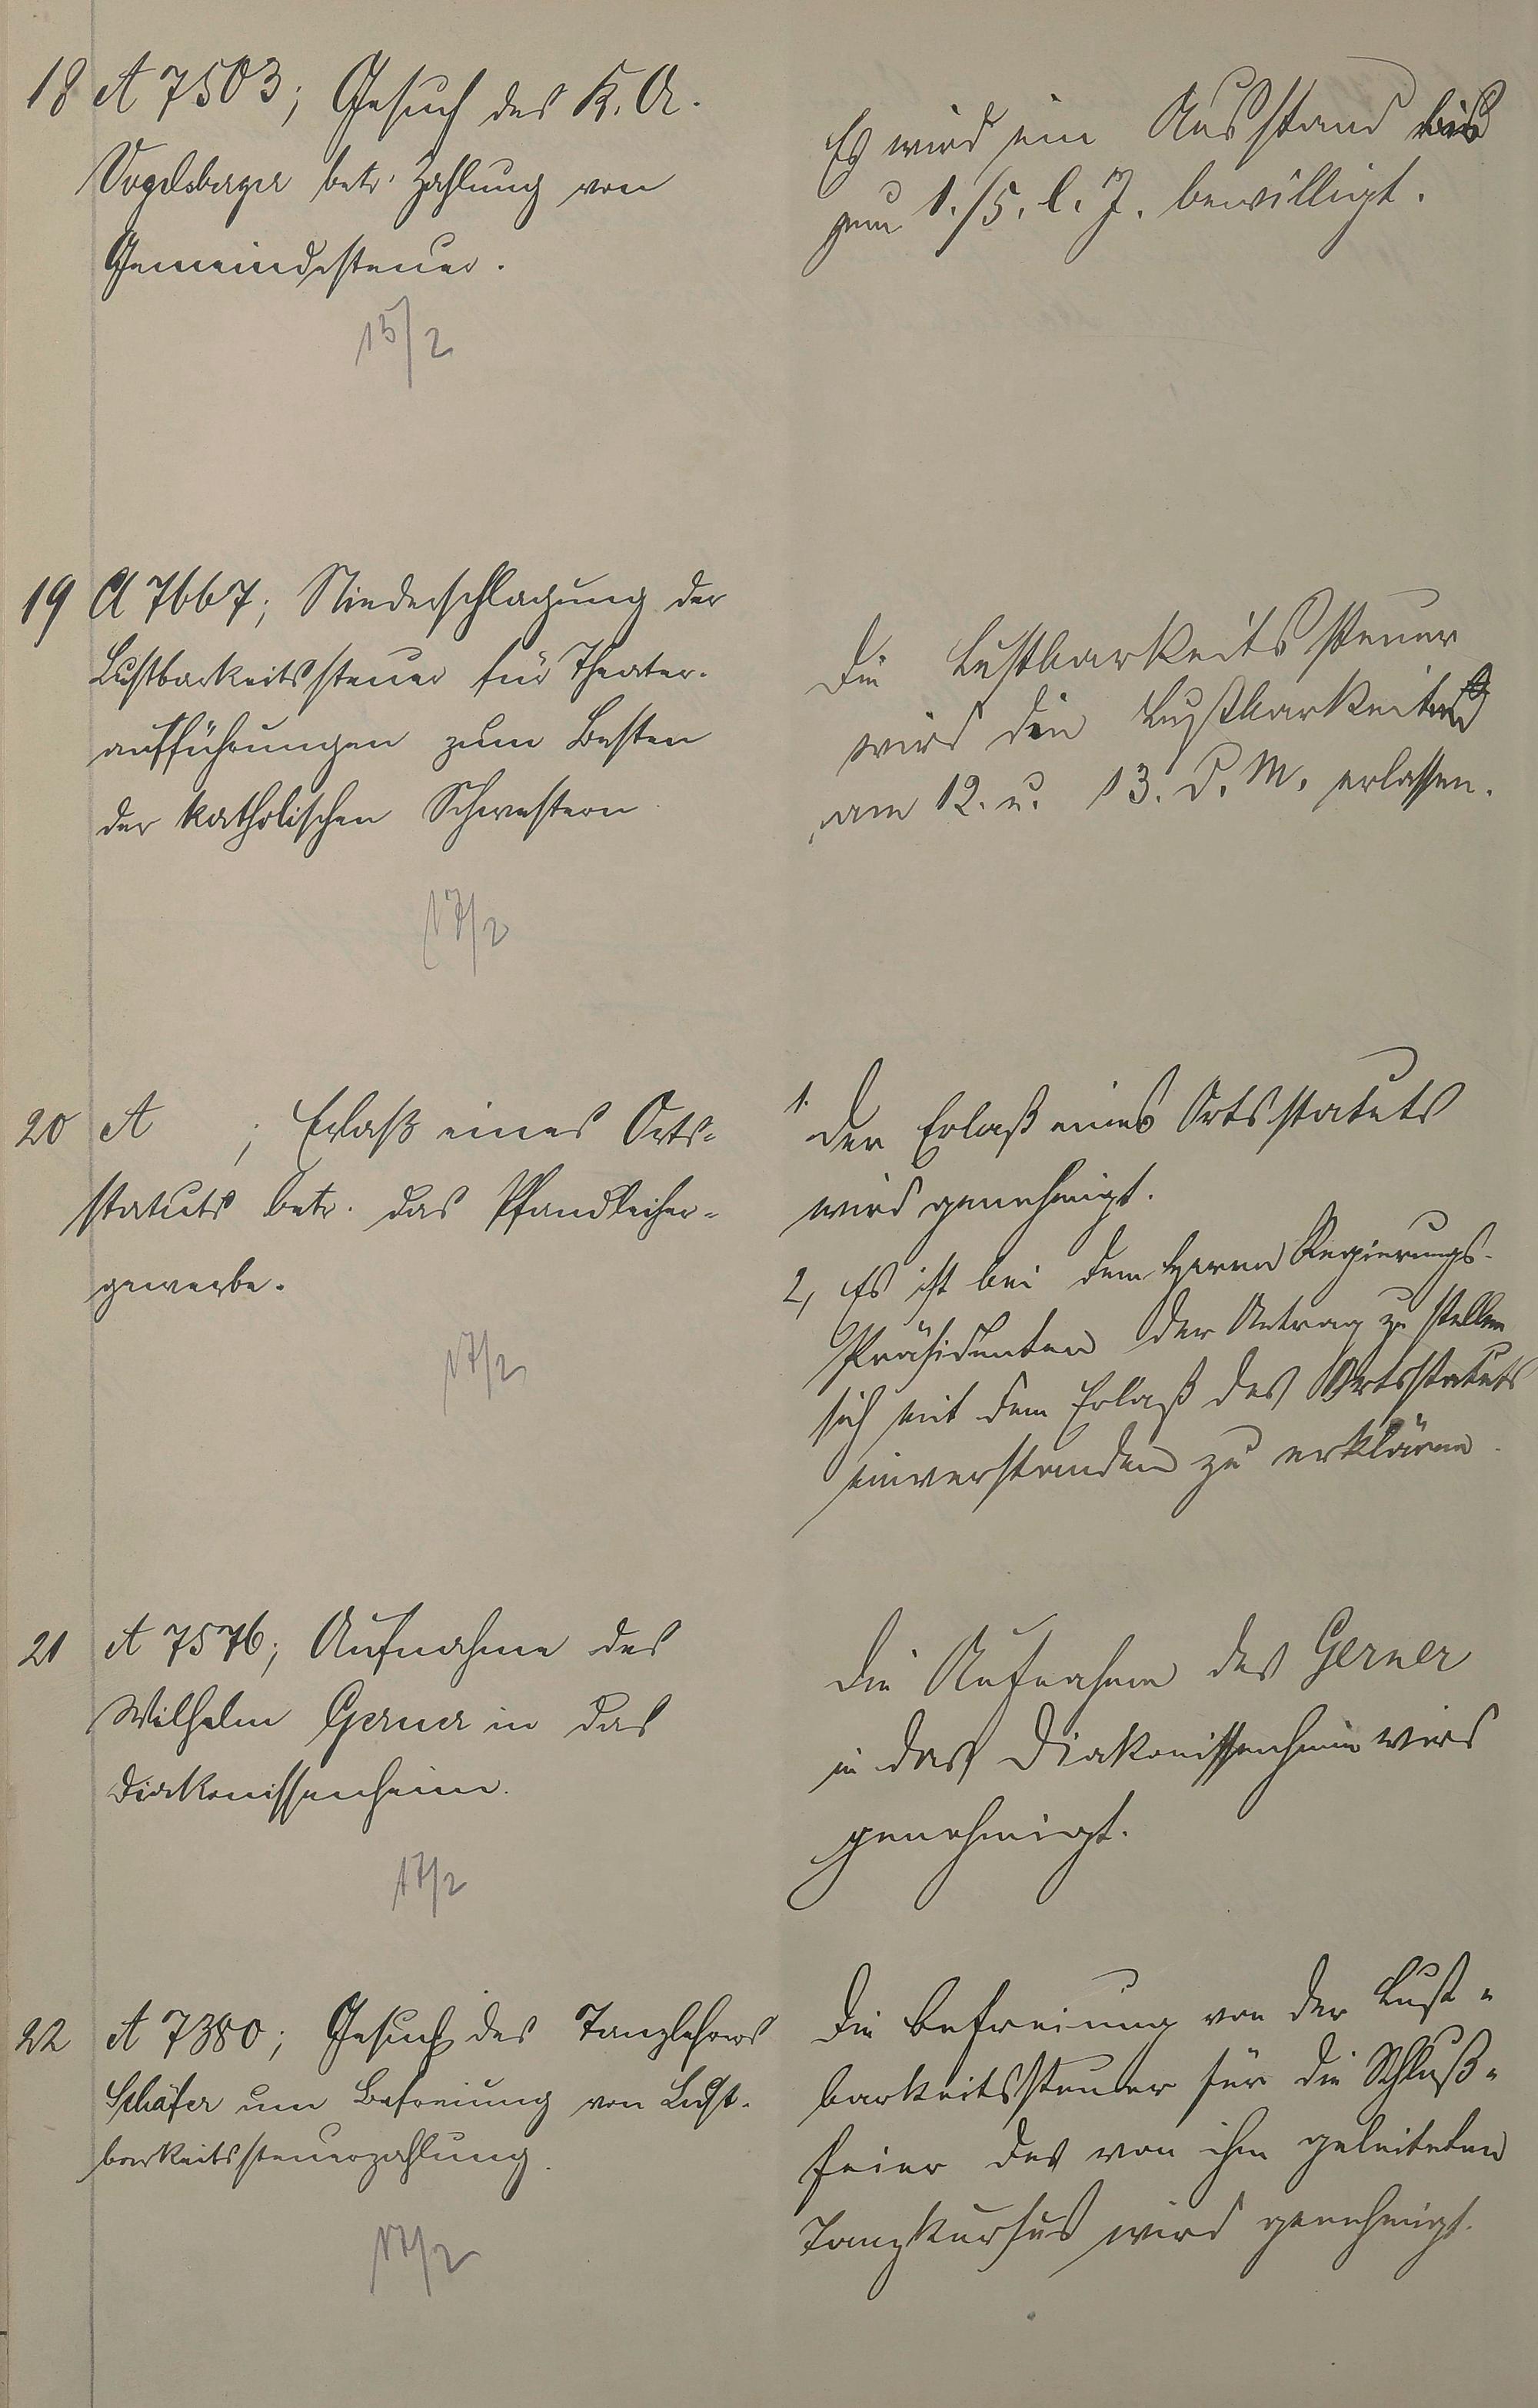 18 A 7503; Gesuch des K. A.
Vogelsberger betr. Zahlung von
Gemeindesteuer.
15/2
Es wird ein Ausstand bis
zum 1./5. l. J. bewilligt.
19 A 7667; Niederschlagung der
Lustbarkeitssteuer für Theater-
aufführungen zum Besten
der katholischen Schwestern
17/2
Die Lustbarkeitssteuer
wird den Lustbarkeiten
am 12. u. 13. d. M. erlassen.
20 A ; Erlaß eines Orts-
statuts betr. das Pfandleiher-
gewerbe.
17/2
1. Der Erlaß eines Ortsstatuts
wird genehmigt.
2, Es ist bei dem Herrn Regierungs-
Präsidenten der Antrag zu stellen
sich mit dem Erlaß des Ortsstatuts
einverstanden zu erklären.
21 A 7576; Aufnahme des
Wilhelm Gerner in das
Diakonissenheim.
17/2
Die Aufnahme des Gerner
in das Diakonissenheim wird
genehmigt.
22 A 7380; Gesuch des Tanzlehrers
Schäfer um Befreiung von Lust-
barkeitssteuerzahlung.
17/2
Die Befreiung von der Lust-
barkeitssteuer für die Schluß-
feier des von ihm geleiteten
Tanzkursus wird genehmigt.